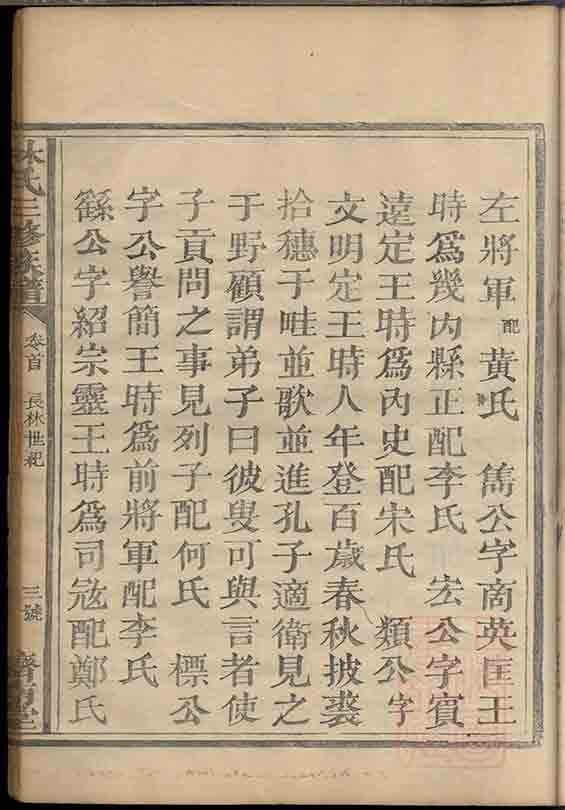 左將軍配黃氏 雋公字商英匡王
時爲幾內縣正配李氏 宏公字賓
遠定王時爲內史配宋氏 類公字
文明定王時人年登百歲春秋披裘
拾穗于畦並歌並進孔子適衛見之
于野顧謂弟子曰彼叟可與言者使
子貢問之事見列子配何氏 標公
字公譽簡王時爲前將軍配李氏
繇公字紹宗靈王時爲司寇配鄭氏
林氏三修族譜 卷首 長林世紀 三號